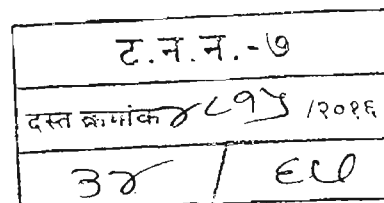 ट.न.न.-७
दस्त क्रमांक ४८१५ /२०१६
३४ /